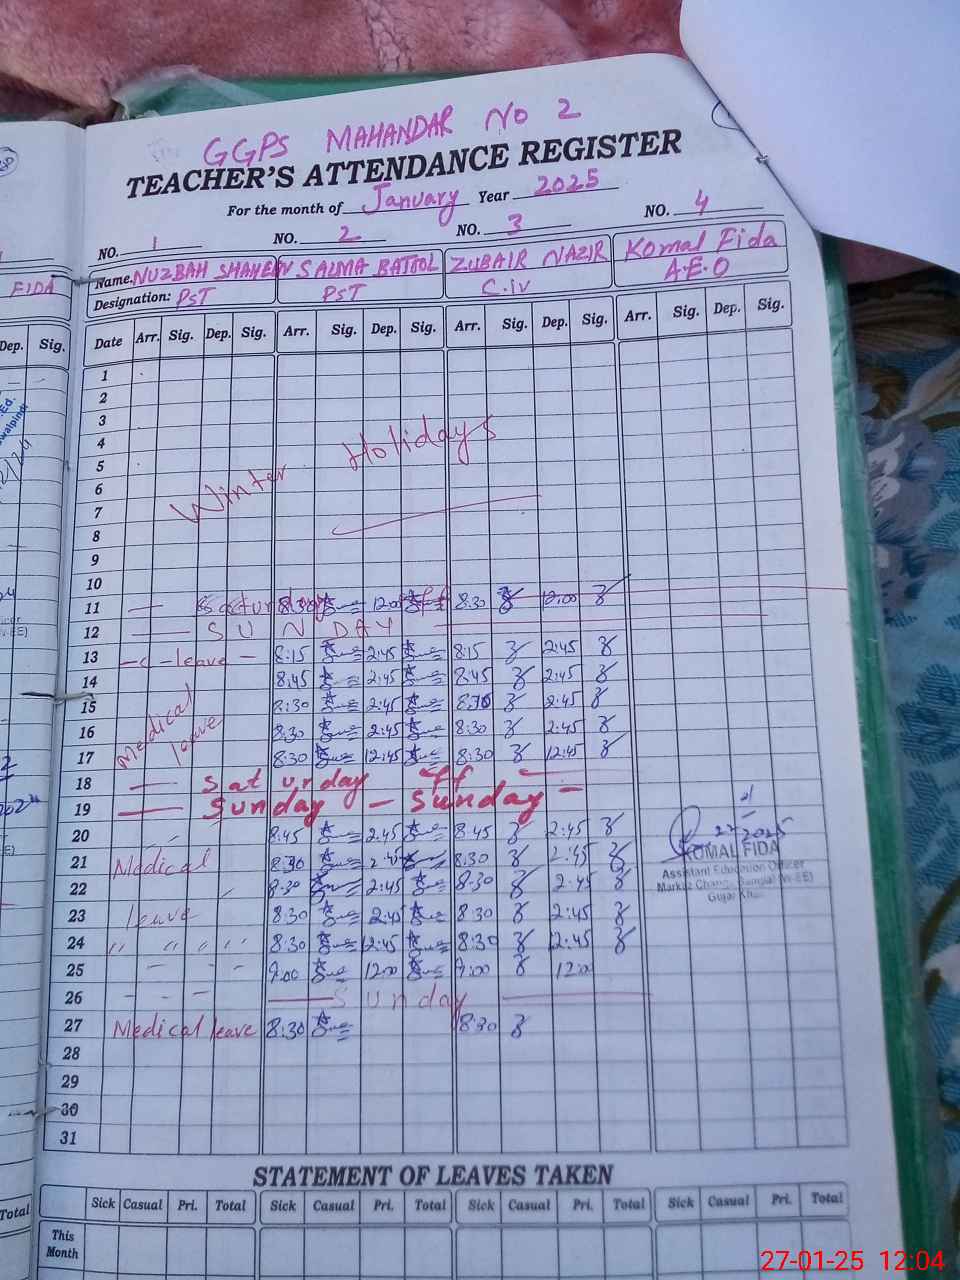 GGPS MAHANDAR NO 2
TEACHER'S ATTENDANCE REGISTER
For the month of January Year 2025
NO. 1 NO. 2 NO. 3 NO. 4
Name. NUZBAH SHAHEEN SALMA BATOOL ZUBAIR NAZIR Komal Fida
Designation: PST PST C.iv A.E.O
Date Arr. Sig. Dep. Sig. Arr. Sig. Dep. Sig. Arr. Sig. Dep. Sig. Arr. Sig. Dep. Sig.
1
2
3
4
5
6
7
8
9
10
Winter Holidays
11 Saturday 8:30 12:00 8:30 12:00
12 SUNDAY
13 C - leave - 8:15 2:45 8:15 2:45
14 8:45 2:45 8:45 2:45
15 8:30 2:45 8:30 2:45
16 Medical leave 8:30 2:45 8:30 2:45
17 8:30 12:45 8:30 12:45
18 Saturday off
19 Sunday - Sunday -
20 8:45 2:45 8:45 2:45
21 Medical 8:30 2:45 8:30 2:45
22 8:30 2:45 8:30 2:45
23 leave 8:30 2:45 8:30 2:45
24 " " " " 8:30 12:45 8:30 12:45
25 9:00 12:00 9:00 12:00
26 Sunday
27 Medical leave 8:30 8:30
28
29
30
31
KOMAL FIDA
Assistant Education Officer
STATEMENT OF LEAVES TAKEN
Sick Casual Pri. Total Sick Casual Pri. Total Sick Casual Pri. Total Sick Casual Pri. Total
This Month
FIDA
Dep. Sig.
Total
27-01-25 12:04